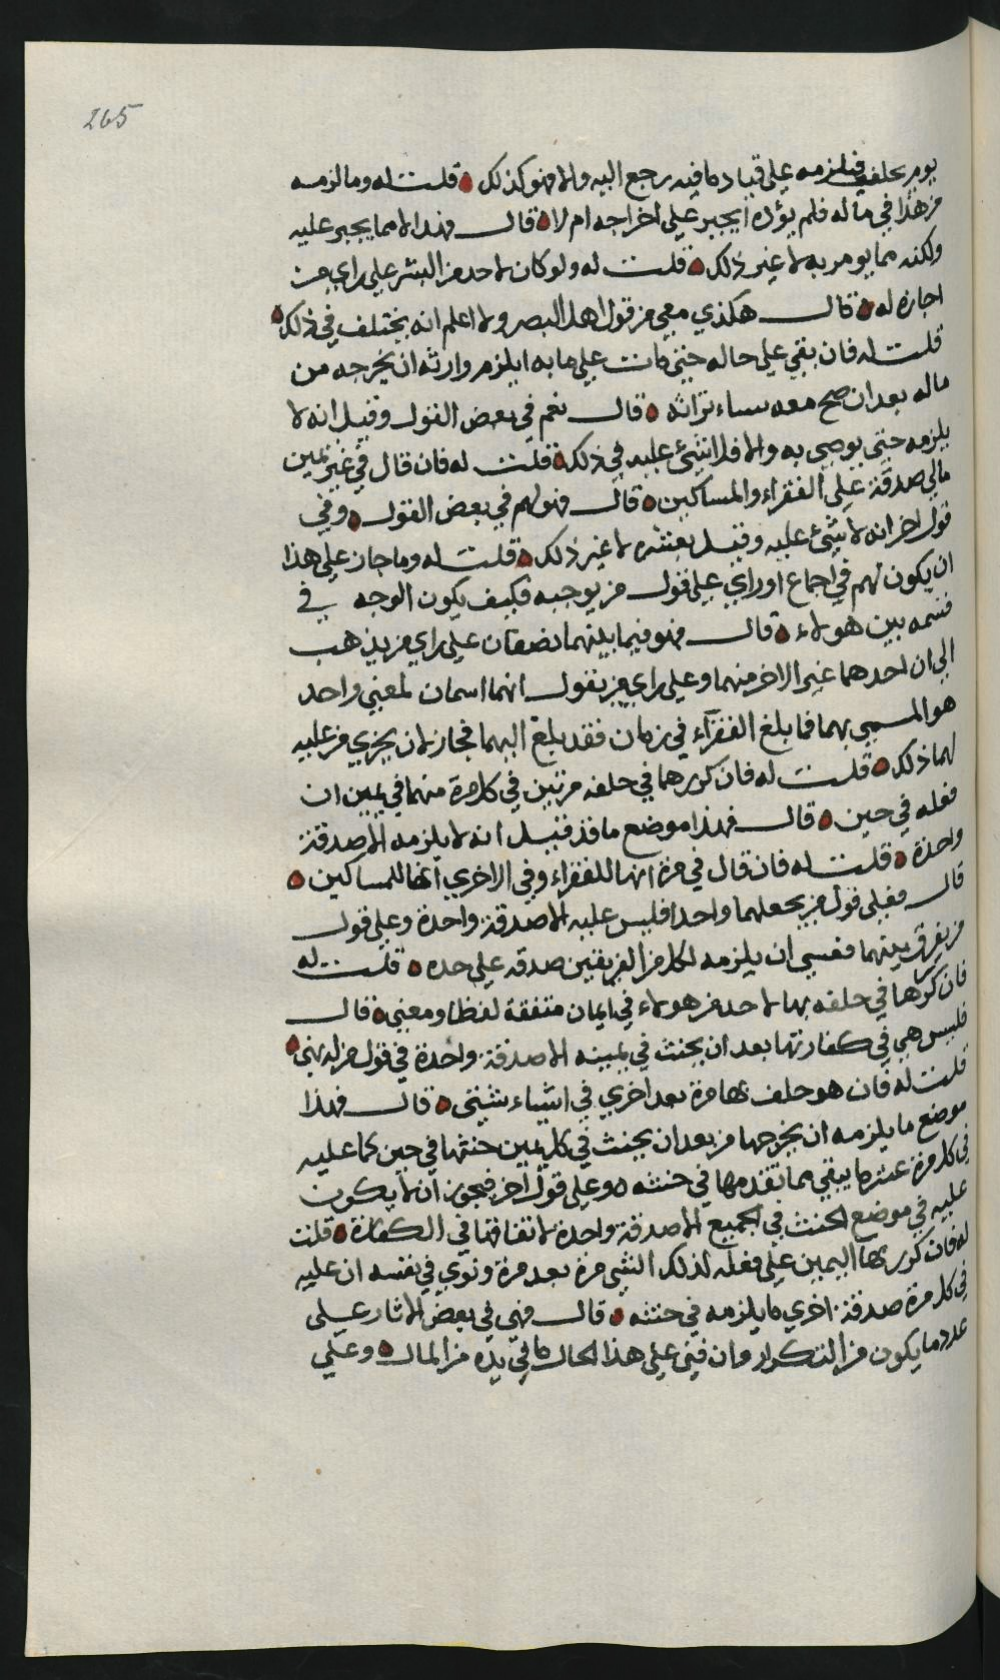 265
يوم يحلف فيلزمه على قياد ما فيه رجع اليه والا فهو كذلك قلت له وما لزمه
من هذا في ماله فلم يؤده ايجبر على اخراجه ام لا قال فهذا لا مما يجبر عليه
ولكنه مما يومر به لا غير ذلك قلت له ولو كان لاحد من البشر على راي من
اجازه له قال هكذي معي من قول اهل البصر ولا اعلم انه يختلف في ذلك
قلت له فان بقي على حاله حتى مات على ما به ايلزم وارثه ان يخرجه من
ماله بعد ان صح معه تراثه قال نعم في بعض القول وقيل انه لا
يلزمه حتى يوصي به والا فلا شئ عليه في ذلك قلت له فان قال في غير يمين
مالي صدقة على الفقراء والمساكين قال فهو لهم في بعض القول وفي
قول اخر انه لا شئ عليه وقيل بعشره لا غير ذلك قلت له وما جاز على هذا
ان يكون لهم في اجماع او راي على قول من يوجبه فكيف يكون الوجه في
قسمه بين هولاء قال فهو فيما بينهما نصفان على راي من يذهب
الى ان احدهما غير الاخر منهما وعلى راي من يقول انهما اسمان لمعنى واحد
هو المسمى بهما فما بلغ الفقراء في زمان فقد بلغ اليهما فجاز لان يجزي من عليه
لهما ذلك قلت له فان كررهما في حلفه مرتين في كل مرة منهما في يمين ان
فعله في حين قال فهذا موضع ما قد قيل انه لا يلزمه الا صدقة
واحدة قلت له فان قال في مرة انها للفقراء وفي الاخرى انها للمساكين
قال فعلى قول من يجعلهما واحدا فليس عليه الا صدقة واحدة وعلى قول
من يفرق بينهما فعسى ان يلزمه لكل من الفريقين صدقه على حده قلت له
فان كررها في حلفه بها لاحد من هولاء في ايمان متفقة لفظا ومعنى قال
فليس هي في كفارتها بعد ان يحنث في يمينه الا صدقة واحدة في قول من
قلت له فان هو حلف بها مرة بعد اخرى في اشياء شتى قال فهذا
موضع ما يلزمه ان يخرجها من بعد ان يحنث في كل يمين حنثها في حين كما عليه
في كل مرة عشر ما يبقي مما تقدمها في حنثه وعلى قول اخر فيجوز ان لا يكون
عليه في موضع الحنث في الجميع الا صدقة واحدة لاتفاقها في الكفارة قلت
له فان كرر بها اليمين على فعله لذلك الشي مرة بعد مرة ونوى في نفسه ان عليه
في كل مرة صدقة اخرى ما يلزمه في حنثه قال فهي في بعض الاثار على
عدد ما يكون من التكرار وان فنى على هذا الحال ما في يده من المال وعلى